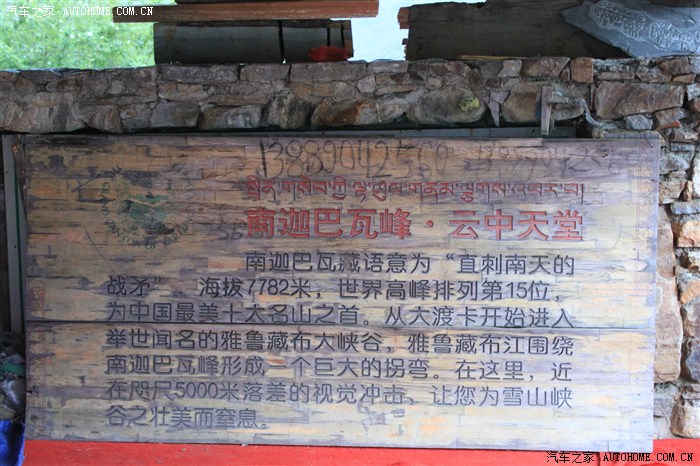 汽车之家 AUTOHOME.COM.CN
汽车之家 AUTOHOME.COM.CN
南迦巴瓦峰·云中天堂
南迦巴瓦藏语意为“直刺南天的
战矛”，海拔7782米，世界高峰排列第15位，
为中国最美十大名山之首。从大渡卡开始进入
举世闻名的雅鲁藏布大峡谷，雅鲁藏布江围绕
南迦巴瓦峰形成一个巨大的拐弯。在这里，近
在咫尺5000米落差的视觉冲击，让您为雪山峡
谷之壮美而窒息。
汽车之家 AUTOHOME.COM.CN